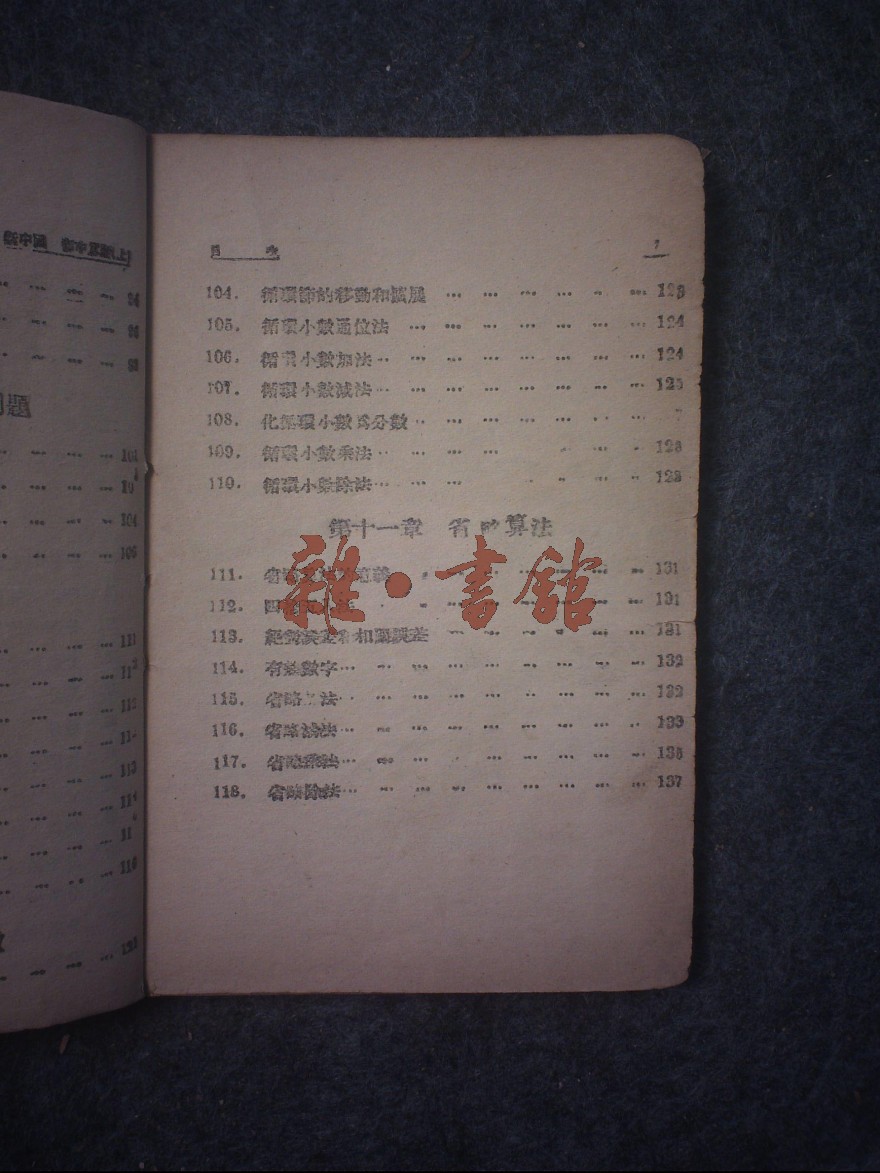 新中國 初中算術(上)
94
題
104
106
111
112
113
114
116
目 次
104. 循環節的移動和擴展 … … … … … … 123
105. 循環小數通位法 … … … … … … … 124
106. 循環小數加法 … … … … … … … … 124
107. 循環小數減法 … … … … … … … … 125
108. 化循環小數爲分數 … … … … … …
109. 循環小數乘法 … … … … … … … 128
110. 循環小數除法 … … … … … … … 128
第十一章 省略算法
111. 省略算法 … … … … … … 131
112. 四捨五入法 … … … … … … 131
113. 絕對誤差和相對誤差 … … … … … … 131
114. 有效數字 … … … … … … … … … 132
115. 省略加法 … … … … … … … … … 132
116. 省略減法 … … … … … … … … … 133
117. 省略乘法 … … … … … … … … 135
118. 省略除法 … … … … … … … … … 137
雜·書館